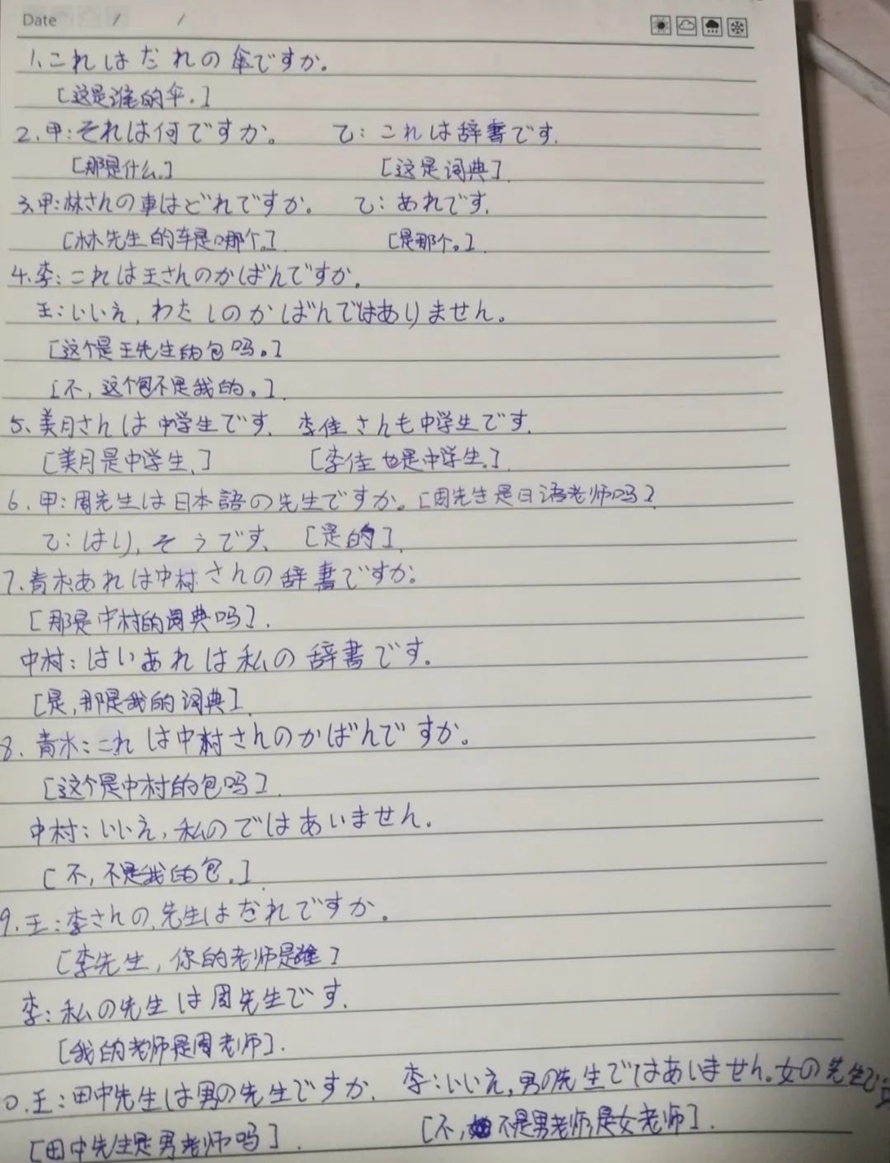 Date / /
1、これはだれの傘ですか。
[这是谁的伞.]
2、甲:それは何ですか。 乙:これは辞書です.
[那是什么.] [这是词典].
3、甲:林さんの車はどれですか。 乙:あれです.
[林先生的车是哪个.] [是那个。].
4、李:これは王さんのかばんですか.
王:いいえ,わたしのかばんではありません。
[这个是王先生的包吗。]
[不,这个包不是我的。].
5、美月さんは中学生です. 李佳さんも中学生です.
[美月是中学生.] [李佳也是中学生.].
6、甲:周先生は日本語の先生ですか。[周先生是日语老师吗].
乙:はり,そうです. [是的].
7、青木あれは中村さんの辞書ですか.
[那是中村的词典吗].
中村:はいあれは私の辞書です.
[是,那是我的词典].
8、青木:これは中村さんのかばんですか。
[这个是中村的包吗].
中村:いいえ,私のではあいません.
[不,不是我的包.].
9、王:李さんの先生はだれですか.
[李先生,你的老师是谁]
李:私の先生は周先生です.
[我的老师是周老师].
0、王:田中先生は男の先生ですか. 李:いいえ,男の先生ではあいません。女の先生です
[田中先生是男老师吗]. [不,不是男老师,是女老师].